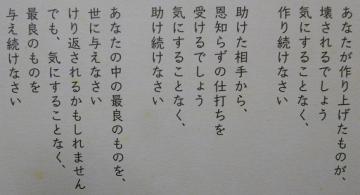 あなたが作り上げたものが、
壊されるでしょう
気にすることなく、
作り続けなさい
助けた相手から、
恩知らずの仕打ちを
受けるでしょう
気にすることなく、
助け続けなさい
あなたの中の最良のものを、
世に与えなさい
けり返されるかもしれません
でも、気にすることなく、
最良のものを
与え続けなさい